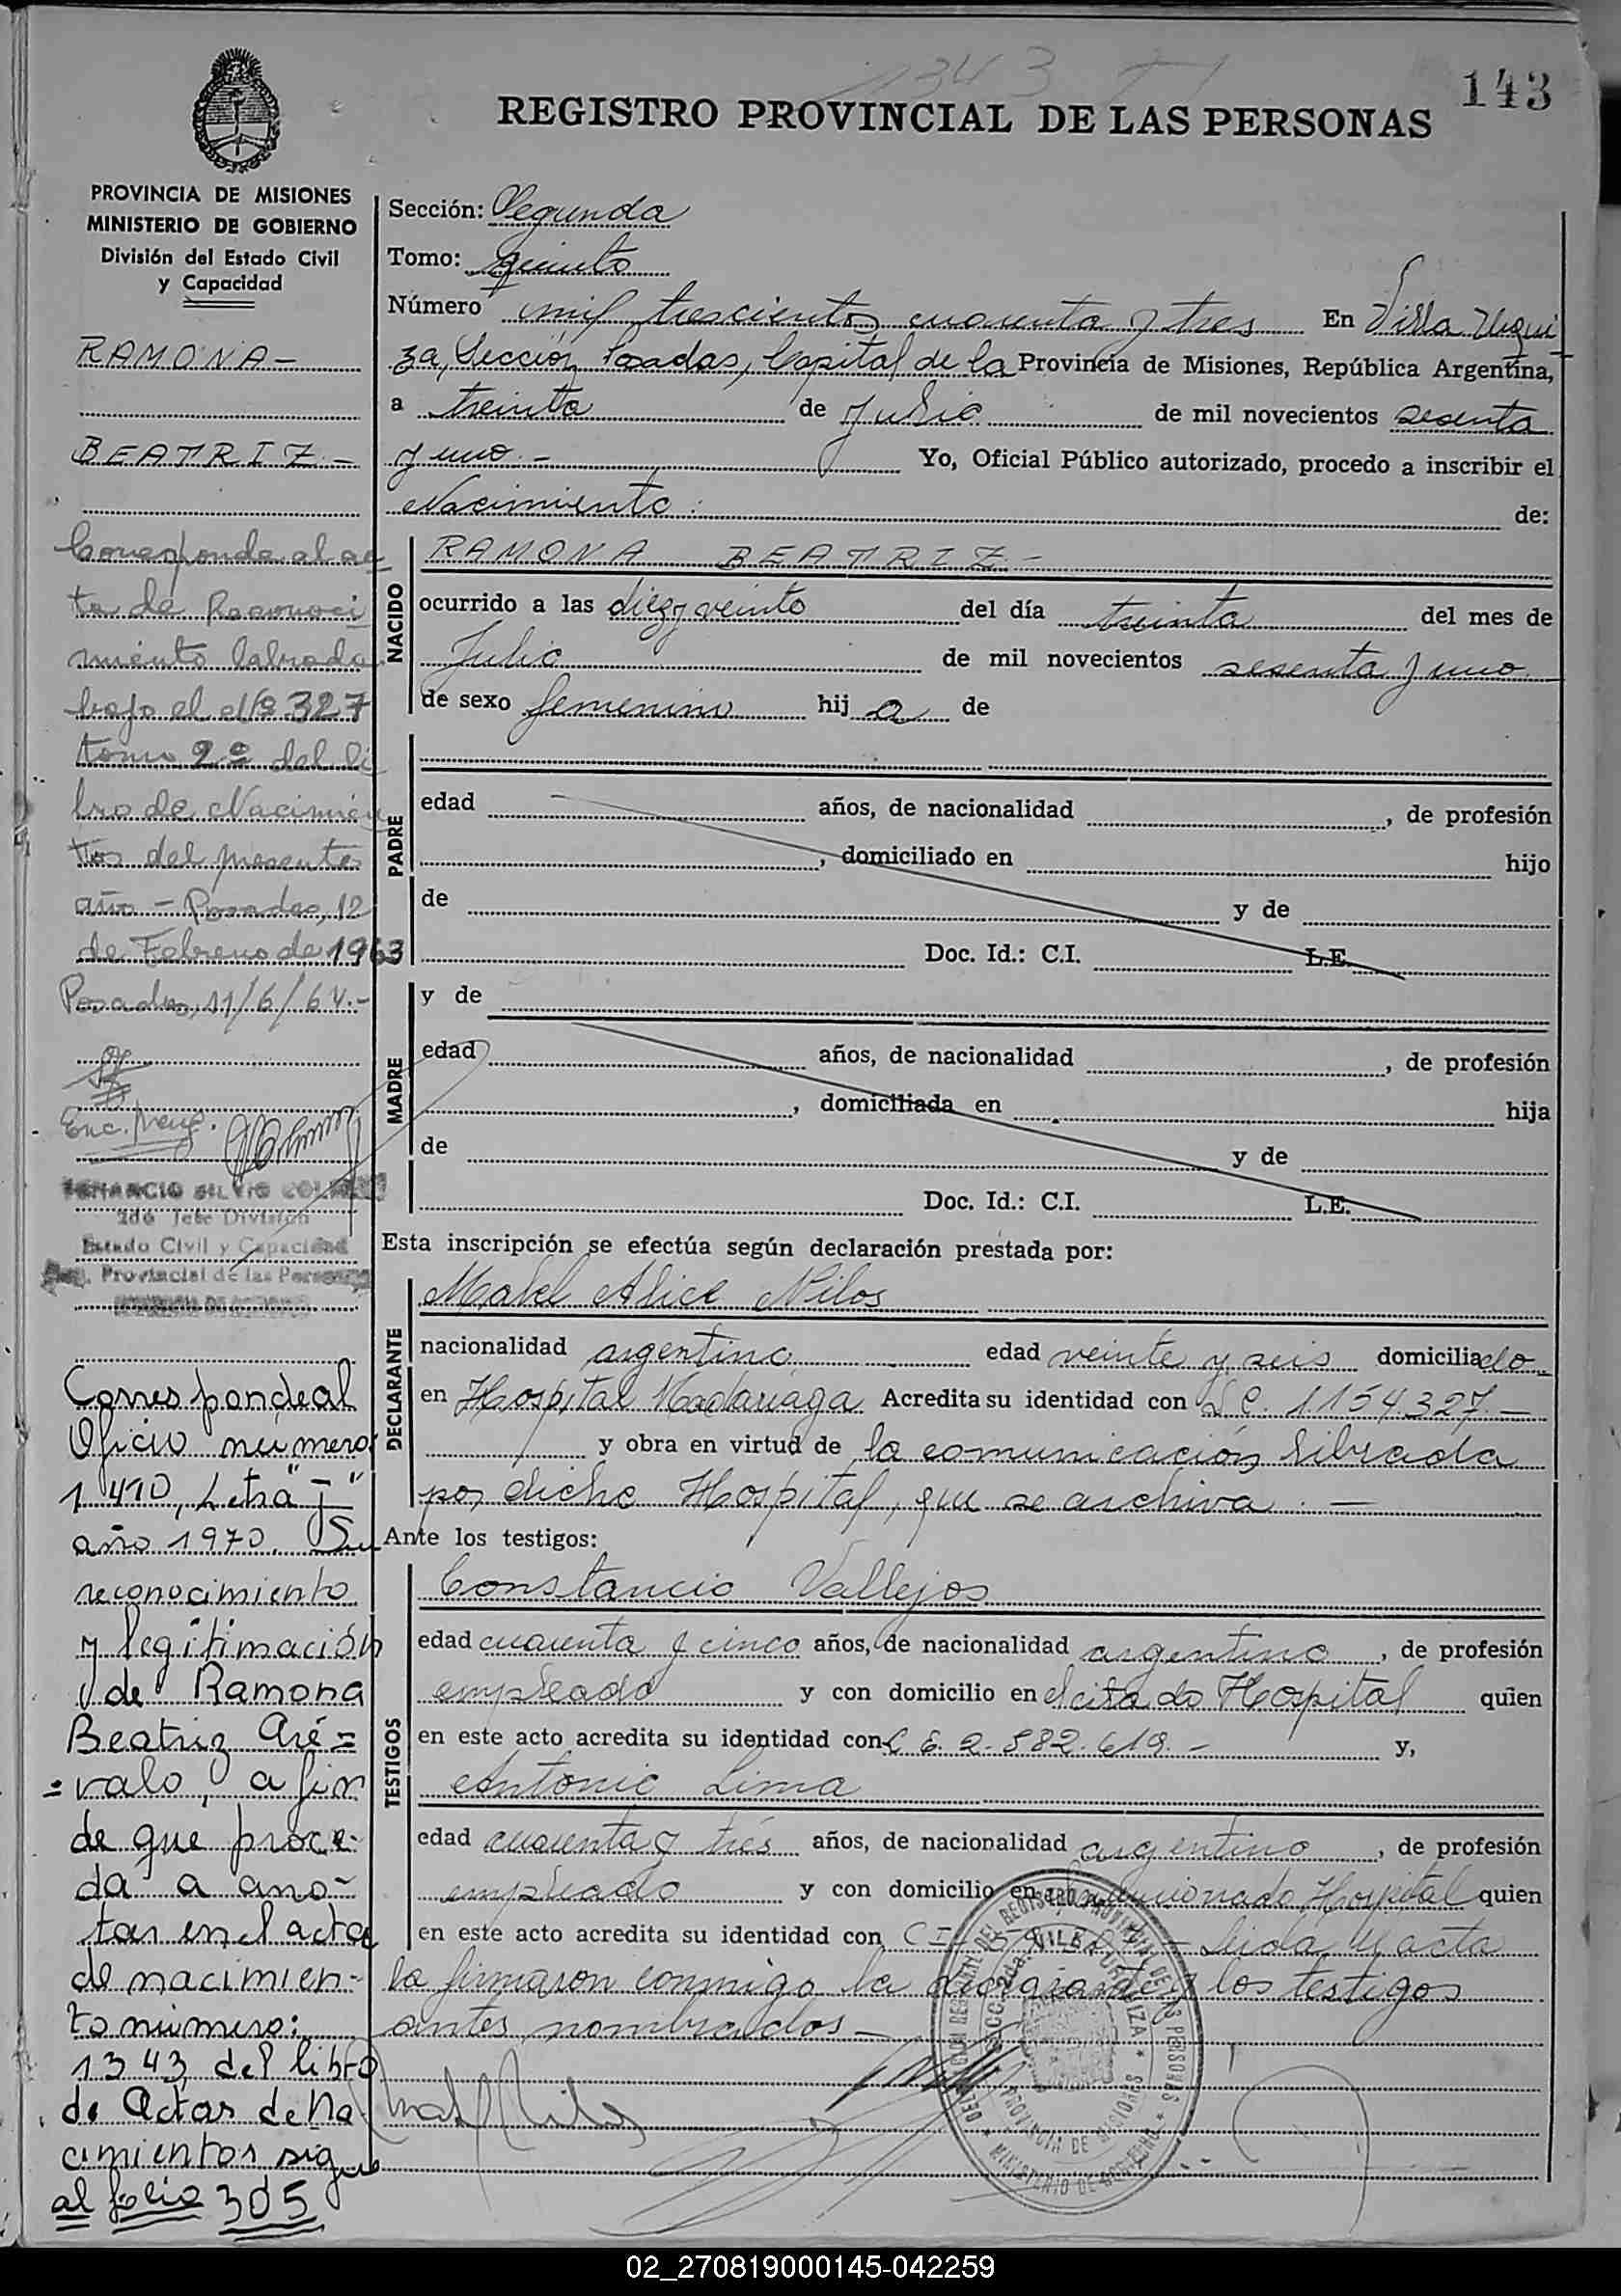 1343 T
143
REGISTRO PROVINCIAL DE LAS PERSONAS
PROVINCIA DE MISIONES
MINISTERIO DE GOBIERNO
División del Estado Civil
y Capacidad
RAMONA-
BEATRIZ-
Corresponde al ac
ta de Reconoci
miento labrada
bajo el Nº 327
tomo 2º del li
bro de Nacimien
tos del presente
año - Posadas, 12
de Febrero de 1963
Posadas, 11/6/64.-
Enc.
IGNACIO SILVIO
2do Jefe División
Estado Civil y Capacidad
Provincial de las Personas
Corresponde al
Oficio número:
1410, Letra "J"
año 1970. Su
reconocimiento
y legitimación
de Ramona
Beatriz Aré=
=valo, a fin
de que proce-
da a ano-
tar en el acta
de nacimien-
to número:
1343 del libro
de Actas de Na
cimientos sigue
al folio 305
Sección: Segunda
Tomo: Quinto
Número mil trescientos cuarenta y tres En Villa Urqui
za, Sección Posadas, Capital de la Provincia de Misiones, República Argentina,
a treinta de Julio de mil novecientos sesenta
y uno.- Yo, Oficial Público autorizado, procedo a inscribir el
Nacimiento: de:
NACIDO
RAMONA BEATRIZ-
ocurrido a las diez y veinte del día treinta del mes de
Julio de mil novecientos sesenta y uno
de sexo femenino hija de
PADRE
edad años, de nacionalidad , de profesión
, domiciliado en hijo
de y de
Doc. Id.: C.I. L.E.
MADRE
y de
edad años, de nacionalidad , de profesión
, domiciliada en hija
de y de
Doc. Id.: C.I. L.E.
Esta inscripción se efectúa según declaración prestada por:
DECLARANTE
Mabel Alice Nilos
nacionalidad argentina edad veinte y seis domiciliado
en Hospital Madariaga Acredita su identidad con L C. 1154327.-
y obra en virtud de la comunicación librada
por dicho Hospital, que se archiva.-
Ante los testigos:
TESTIGOS
Constancio Vallejos
edad cuarenta y cinco años, de nacionalidad argentino, de profesión
empleado y con domicilio en el citado Hospital quien
en este acto acredita su identidad con L E. 2.582.619.- y,
Antonio Lima
edad cuarenta y tres años, de nacionalidad argentino, de profesión
empleado y con domicilio en el mencionado Hospital quien
en este acto acredita su identidad con C I. - Leida el acta
la firmaron conmigo la declarante y los testigos
antes nombrados-
VILLA URQUIZA
PROVINCIA DE MISIONES
MINISTERIO DE GOBIERNO
02_270819000145-042259